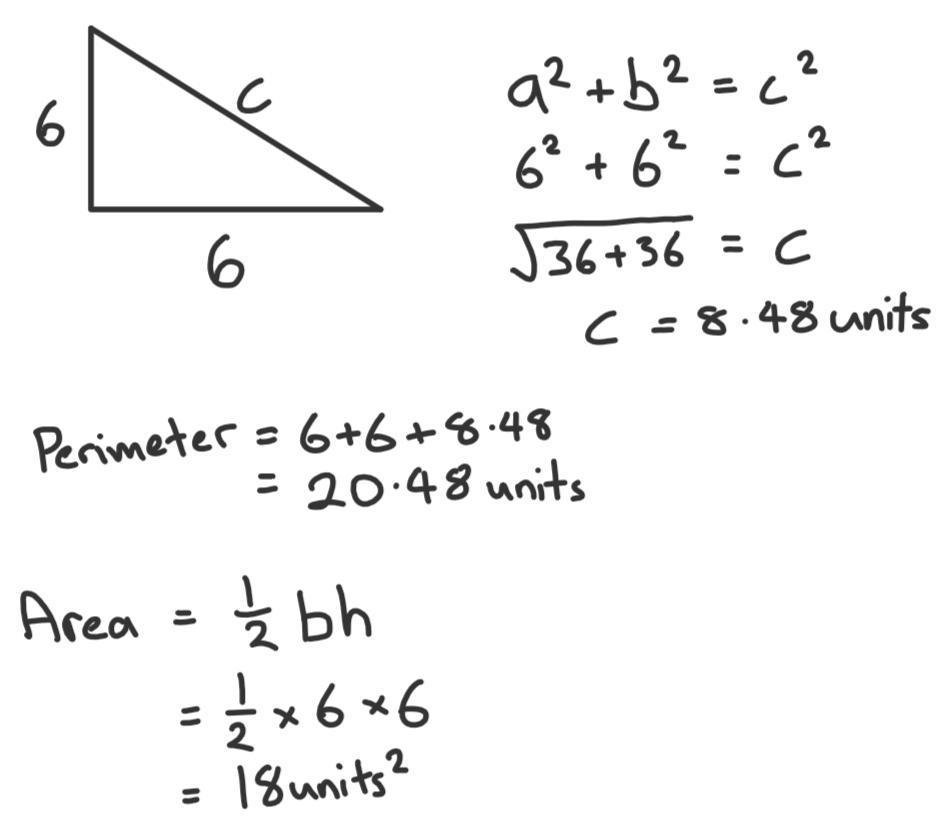 6
c
6
a² + b² = c²
6² + 6² = c²
√36+36 = c
c = 8.48 units
Perimeter = 6+6+8.48
= 20.48 units
Area = 1/2 bh
= 1/2 × 6 × 6
= 18 units²